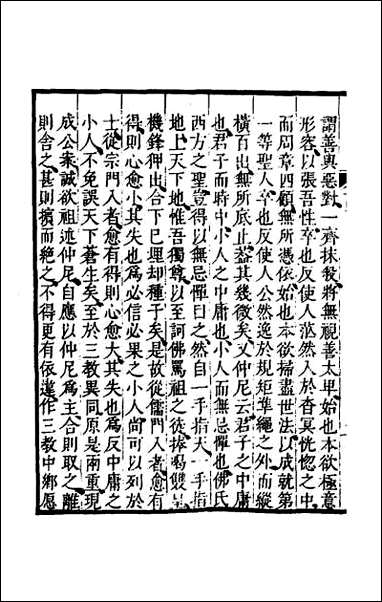 謂善與惡對一齊抹摋將無視善太卑始也本欲極意
形容以張吾性卒也反使人茫然入於杳冥恍惚之中
而周章四顧無所憑依始也本欲掃盡世法以成就第
一等聖人卒也反使人公然逸於規矩準繩之外而縱
橫百出無所底止葢其幾微矣又仲尼云君子之中庸
也君子而時中小人之中庸也小人而無忌憚也佛氏
西方之聖豈得以無忌憚目之然自一手指天一手指
地上天下地惟吾獨尊以至訶佛罵祖之徒棒喝雙呈
機鋒狎出合下已埋却種子矣是故從儒門入者愈有
得則心愈小其失也為必信必果之小人尚可以列於
士從宗門入者愈有得則心愈大其失也為反中庸之
小人不免誤天下蒼生矣至於三教異同原是兩重現
成公案誠欲祖述仲尼自應以仲尼為主合則取之離
則舍之甚則擯而絶之不得更有依違作三教中鄉愿